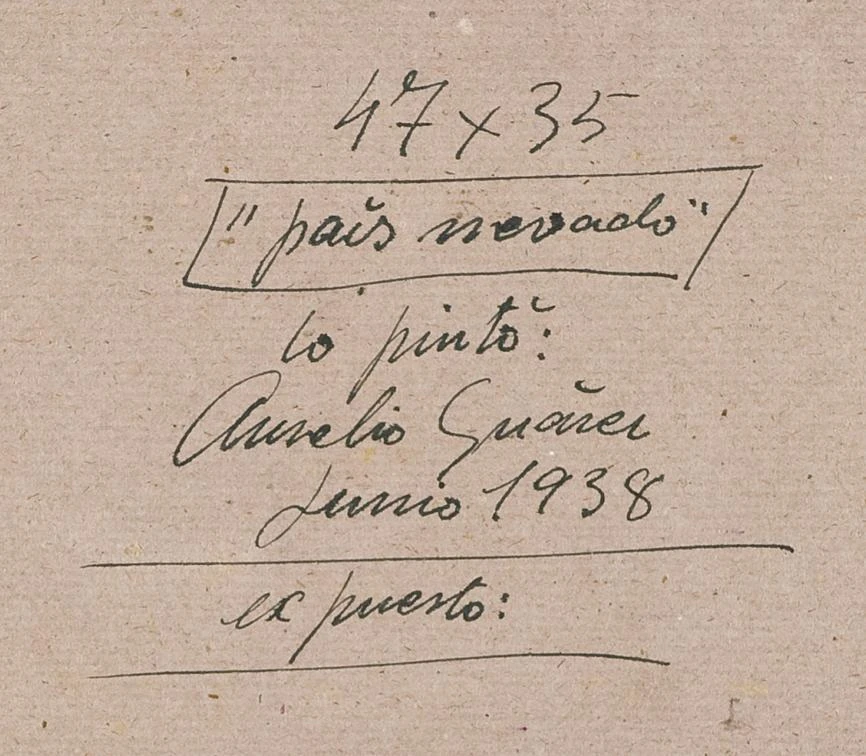 47 x 35
"país nevado"
lo pintó:
Aurelio Suárez
Junio 1938
expuesto: